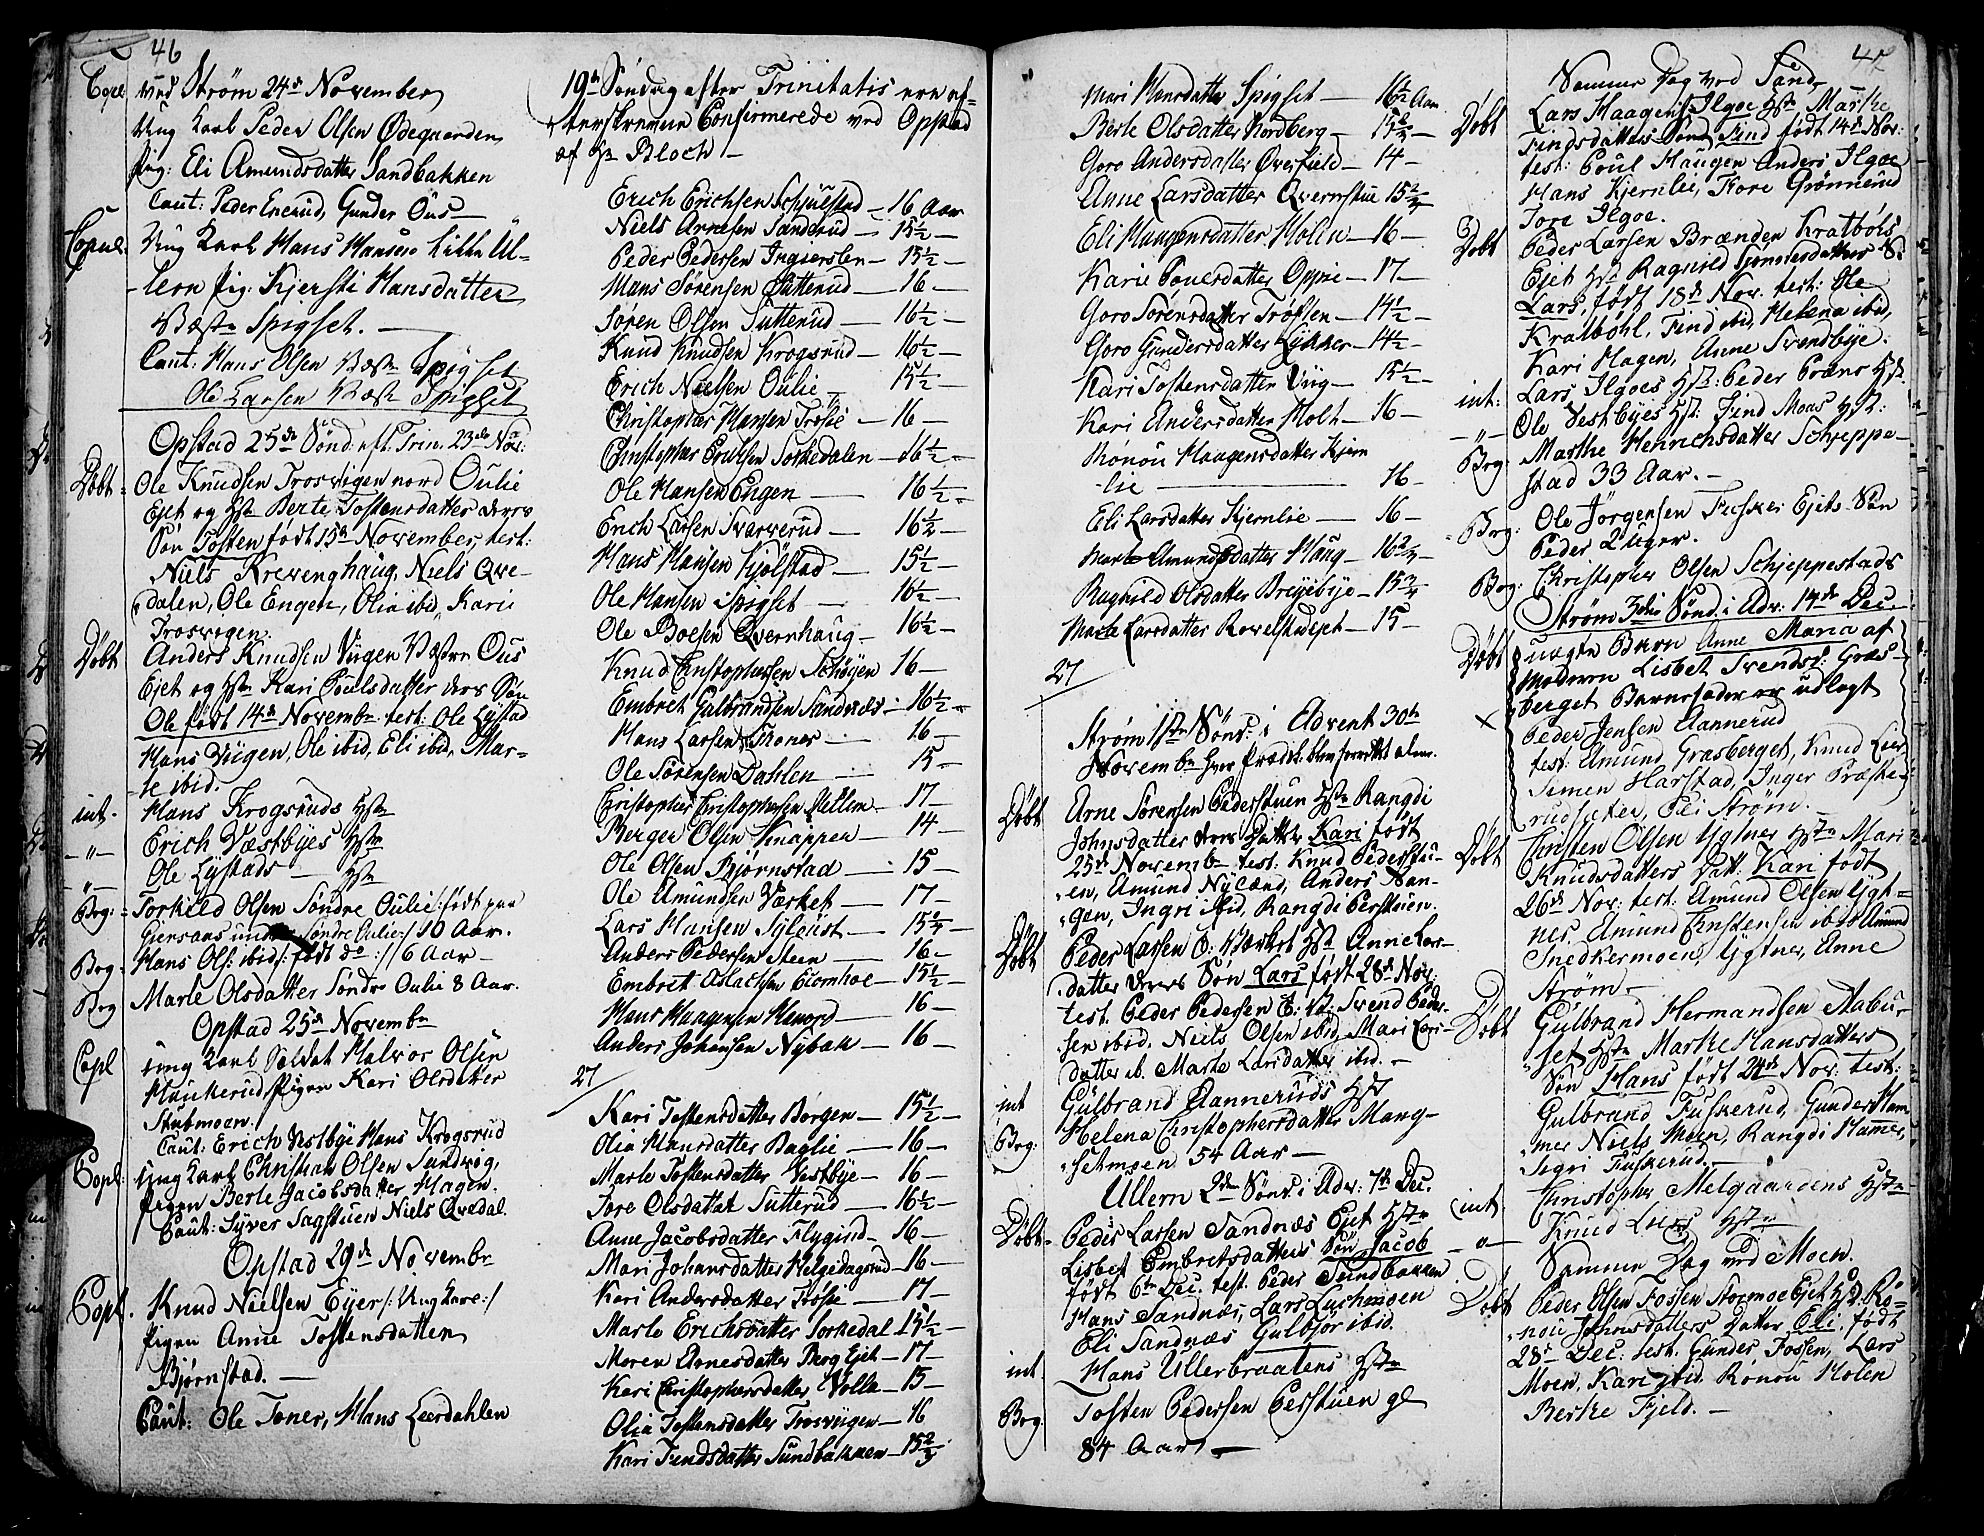 46
Copl ved Strøm 24de November
Ung Karl Peder Olsen Ødegaarden
Pig: Eli Amundsdatter Sandbakken
Caut: Peder Enerud, Gunder Ous
Copul. Ung Karl Hans Hansen Lille Ul-
lern Pig: Kjersti Hansdatter
Væstr Spigset.
Caut: Hans Olsen Væstr Spigset
Ole Larsen Væstr Spigset
Opstad 25de Sønd. eft. Trin. 23de Nov:
Døbt Ole Knudsen Trosvigen nord Oulie
Ejet og Hstr Berte Tostensdatter deres
Søn Tosten født 15de November, test:
Niels Krevenghaug, Niels Qve-
dalen, Ole Engen, Olia ibid, Karie
Trosvigen.
Døbt Anders Knudsen Viigen Væstre Ous
Ejet og Hstr Kari Poulsdatter deres Søn
Ole født 14de Novembr test: Ole Lystad
Hans Viigen, Ole ibid, Eli ibid, Mar-
te ibid.
int. Hans Krogsruds Hstr
-"- Erich Væstbyes Hstr
-"- Ole Lystads Hstr
Brg: Torkild Olsen Søndre Oulie /: født paa
Søndre Oulie :/ 10 Aar.
Brg Hans Ols: ibid /: født do :/ 6 Aar
Brg Marte Olsdatter Søndre Oulie 8 Aar.
Opstad 25de Novembr
Copl Ung Karl Soldat Halvor Olsen
Haukerud Pigen Kari Olsdatter
Stubmoen.
Caut: Erich Vestbye Hans Krogsrud
Copl: Ung Karl Christian Olsen Sundvig,
Pigen Berte Jacobsdatter Hagen.
Caut: Syver Sagstuen Niels Qvedal.
Opstad 29de Novembr
Copl. Knud Nielsen Eyer /: Ung Karl :/
Pigen Anne Tostensdatter
Bjørnstad.
Caut: Ole Toner, Hans Leerdahlen
19de Søndag efter Trinitatis ere ef-
terskrevne Confirmerede ved Opstad
af Hr Bloch
Erich Erichsen Schjulstad 16 Aar
Niels Arnesen Sanderud 15½
Peder Pedersen Ingierslen 15½
Hans Sørensen Sutterud 16
Søren Olsen Sutterud 16½
Knud Knudsen Krogsrud 16½
Erich Nielsen Oulie 15½
Christopher Hansen Trosie 16
Christopher Torkedalen 16½
Ole Hansen Engen 16½
Erich Larsen Svarverud 16½
Hans Hansen Kjølstad 15½
Ole Hansen Spigset 16½
Ole Boesen Qvernhaug 16½
Knud Christophersen Schøyen 16
Embret Gulbrandsen Sandnæs 16½
Hans Larsen Skoner 16
Ole Sørensen Dahlen 15
Christopher Christophersen Mellem 17
Berger Olsen Knappen 14
Ole Olsen Bjørnstad 15
Ole Amundsen Værket 17
Lars Hansen Syleust 15¼
Anders Pedersen Steen 16
Embret Aslachsen Biornhoe 15½
Hans Haagensen Henord 16
Anders Johansen Nybak 16
27
Kari Tostensdatter Borgen 15½
Olia Hansdatter Baglie 16
Marte Tostensdatter Vestbye 16
Tore Olsdatter Sutterud 16½
Anne Jacobsdatter Flygind 16
Mari Johansdatter Helgedagsrud 16
Kari Andersdatter Trosie 17
Marte Erichsdatter Torkedal 15½
Maren Arnesdatter Berg Ejet 17
Kari Christophersdatter Volla 15
Olia Tostensdatter Trosviigen 16
Kari Findsdatter Sundbakken 15⅔
47
Mari Hansdatter Spigset 16½ Aar
Berte Olsdatter Nordberg 15¾
Goro Andersdatter Øverfield 14
Anne Larsdatter Qvernstue 15¼
Eli Haagensdatter Molin 16
Karie Povelsdatter Oppie 17
Goro Sørensdatter Trøften 14½
Goro Gundersdatter Lykker 14½
Kari Tostensdatter Viig 15½
Kari Andersdatter Holt 16
Rønou Haagensdatter Kjern
lie 16
Eli Larsdatter Kjernlie 16
Marte Amundsdatter Haug 16¾
Ragnild Olsdatter Breyebye 15¾
Marte Larsdatter 15
27
Strøm 1ste Sønd: i Advent 30te
Novembr
Døbt Arne Sørensen Pederstuen Hstr Rangdi
Johnsdatter deres Datter Kari født
25de Novembr test: Knud Pederstu-
en, Amund Nylænd, Anders Han-
gen, Ingri ibid, Rangdi Perstuen.
Døbt Peder Larsen O: Værket Hstr Anne Lars-
datter deres Søn Lars født 28de Nov:
test: Peder Pedersen Svend Peder-
sen ibid. Niels Olsen ibid, Mari Lars-
datter ib. Marte Larsdatter ibid.
int Gulbrand Aanneruds Hstr
Brg: Helena Christophersdatter Mang-
setmoen 54 Aar
Ullern 2den Sønd: i Adv: 7de Dec.
Døbt Peder Larsen Sandnæs Ejet Hstr
Lisbet Embretsdatters Søn Jacob
født 6te Dec. test. Peder Sundbakken
Hans Sandnæs, Lars Luchmoen
Eli Sandnæs Gulbjor ibid.
int Hans Ullerbraatens Hstr
Brg: Tosten Pedersen Perstuen gl
84 Aar
Samme Dag ved Sand
Døbt Lars Haagens: Ilgoe Hstr Marthe
Findsdatters Søn Find født 14de Nov:
test: Poul Haugen Anders Ilgoe
Hans Kjernlie, Tore Grønnerud
Tore Ilgoe.
Døbt Peder Larsen Brænden Kratbøls
Ejet Hstr Ragnild Simensdatters S:
Lars, født 18de Nov. test: Ole
Kratbøhl, Find ibid, Helena ibid,
Kari Hagen, Anne Svensbye.
int: Lars Ilgoes Hstr: Peder Præns Hstr
-"- Ole Vestbyes Hstr: Find Moes Hstr:
Brg: Marthe Henrichsdatter Schjeppe-
stad 33 Aar.
Brg: Ole Jørgensen Fusker Ejets Søn
Peder 2 Uger.
Brg: Christopher Olsen Schjeppestads
Strøm 3die Sønd. i Adv: 14de Dec.
Døbt uægte Barn Anne Maria af
Moderen Lisbet Svendsd: Græs-
berget Barnefader er udlagt
Peder Jensen Aannerud
test: Amund Græsberget, Knud Lier
Simen Harstad, Inger Præste-
rudseter, Eli Strøm.
Døbt Christen Olsen Ygtner Hstr Mari
Knudsdatters Datt: Kari født
26de Nov: test: Amund Olsen Ygt-
ner, Amund Christensen ibid Amund
Snedkermoen, Ygtner, Anne
Strøm.
Døbt Gulbrand Hermandsen Aabu-
set Hstr Marthe Hansdatters
Søn Hans født 24de Nov. test:
Gulbrand Fuskerud, Gunder Ham
mer Niels Moen, Rangdi Hammer,
Sigri Fuskerud.
int. Christopher Melgaardens Hstr
-"- Knud Liers Hstr
Samme Dag ved Moen.
Døbt Peder Olsen Fossen Stormoe Ejet H: Ro-
nou Johnsdatters Datter Eli, født
28de Dec: test: Gunder Fossen, Lars
Moen, Kari ibid. Rønou Molen
Berthe Fjeld.